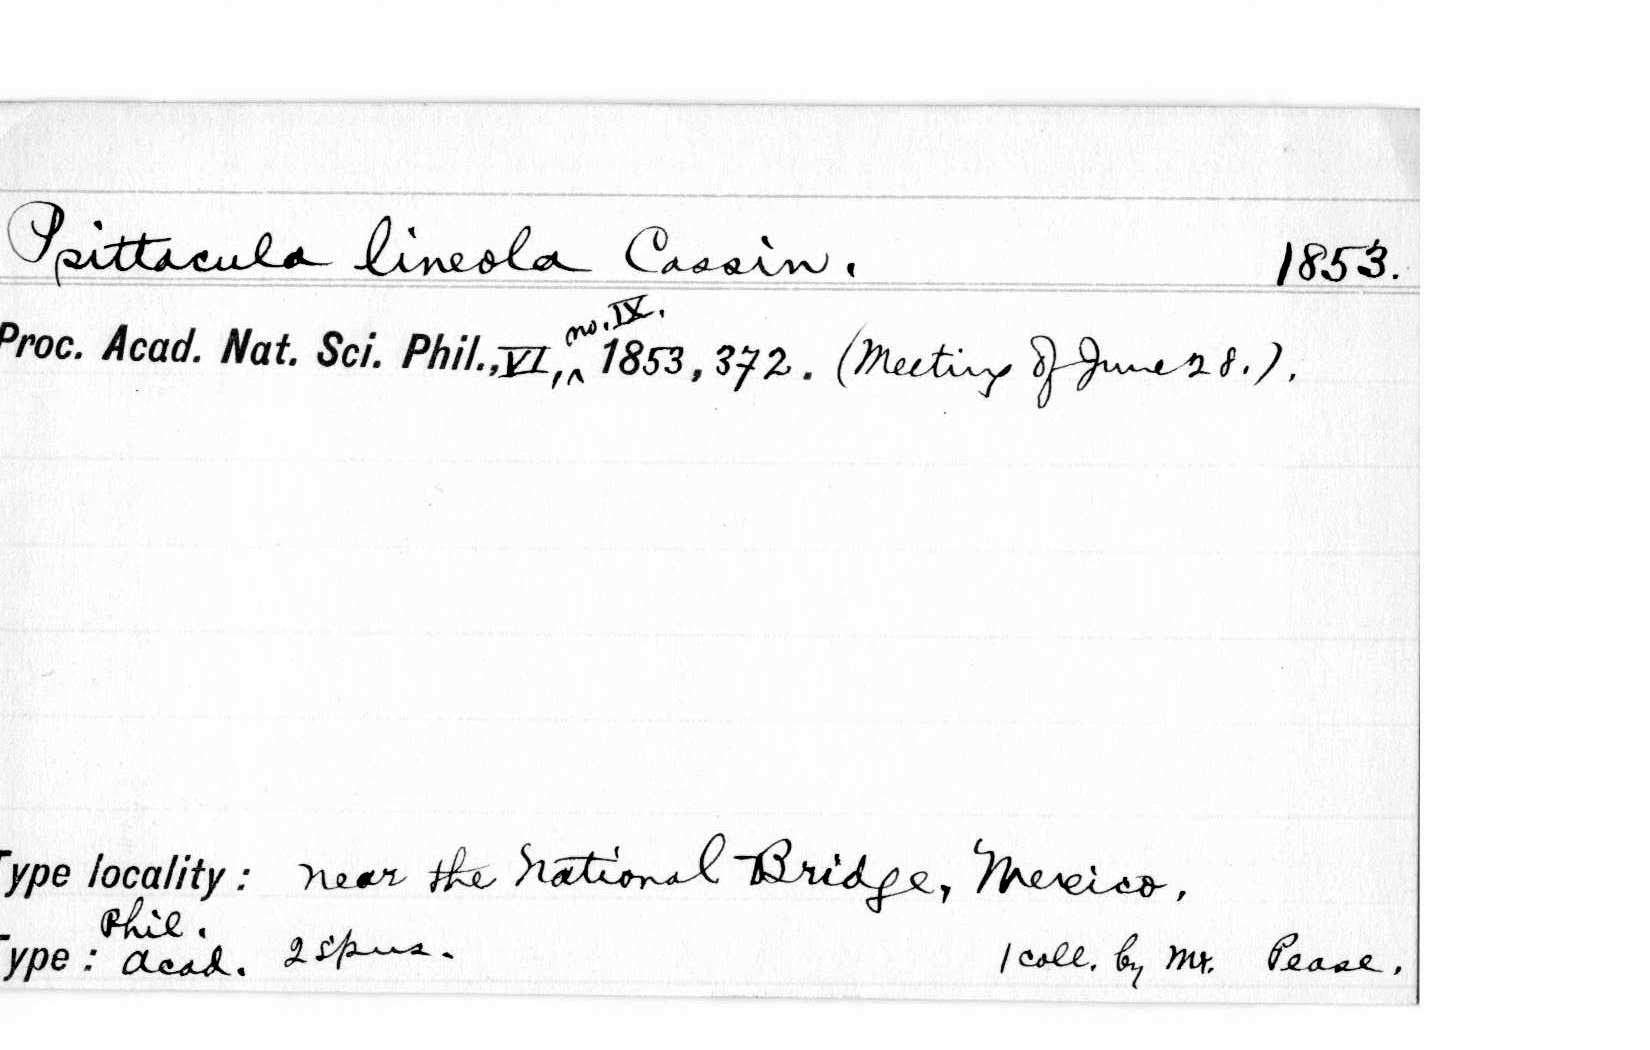 Psittacula lineola Cassin. 1853.
Proc. Acad. Nat. Sci. Phil., VI, no. IX. 1853, 372. (Meeting of June 28.).
Type locality: near the National Bridge, Mexico.
Phil.
Type: Acad. 2 spms. 1 coll. by Mr. Pease.